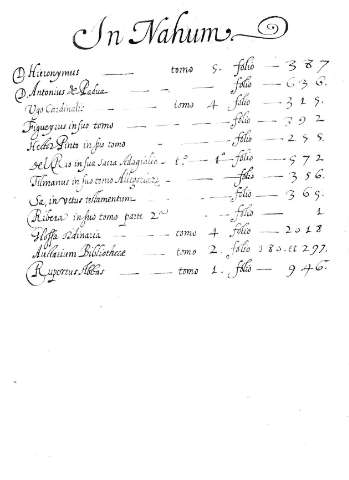 In Nahum
D. Hieronymus — tomo 5. folio — 387
D. Antonius de Padua — folio — 636.
Ugo Cardinalis — tomo 4. folio — 315.
Figueyrus in suo tomo — folio — 392
Hector Pinto in suo tomo — folio — 255.
del Rio in sua sacra Adagialia — t.º — 1.º folio — 572
Titlmanus in suo tomo Allegoriar — folio — 356.
Sa, in vetus testamentum — folio — 365.
Ribera in suo tomo parte 2.ª — folio — 1
Glossa ordinaria — tomo 4. folio — 2018
Auctarium Bibliothecæ — tomo 2. folio 180. et 297.
Rupertus Abbas — tomo 1. folio — 946.